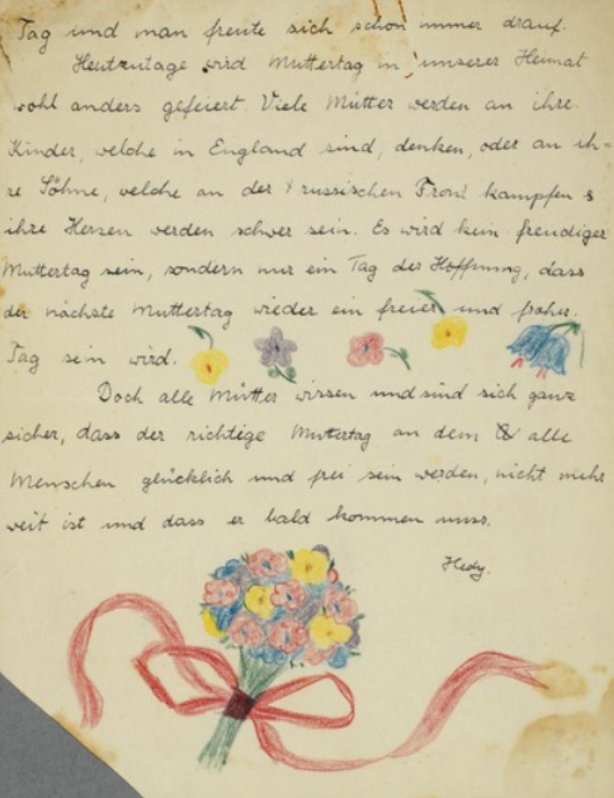 Tag und man freute sich schon immer drauf.
Heutzutage wird Muttertag in unserer Heimat
wohl anders gefeiert. Viele Mütter werden an ihre
Kinder, welche in England sind, denken, oder an ih-
re Söhne, welche an der russischen Front kämpfen &
ihre Herzen werden schwer sein. Es wird kein freudiger
Muttertag sein, sondern nur ein Tag der Hoffnung, dass
der nächste Muttertag wieder ein freier und froher
Tag sein wird.
Doch alle Mütter wissen und sind sich ganz
sicher, dass der richtige Muttertag an dem alle
Menschen glücklich und frei sein werden, nicht mehr
weit ist und dass er bald kommen muss.
Hedy.